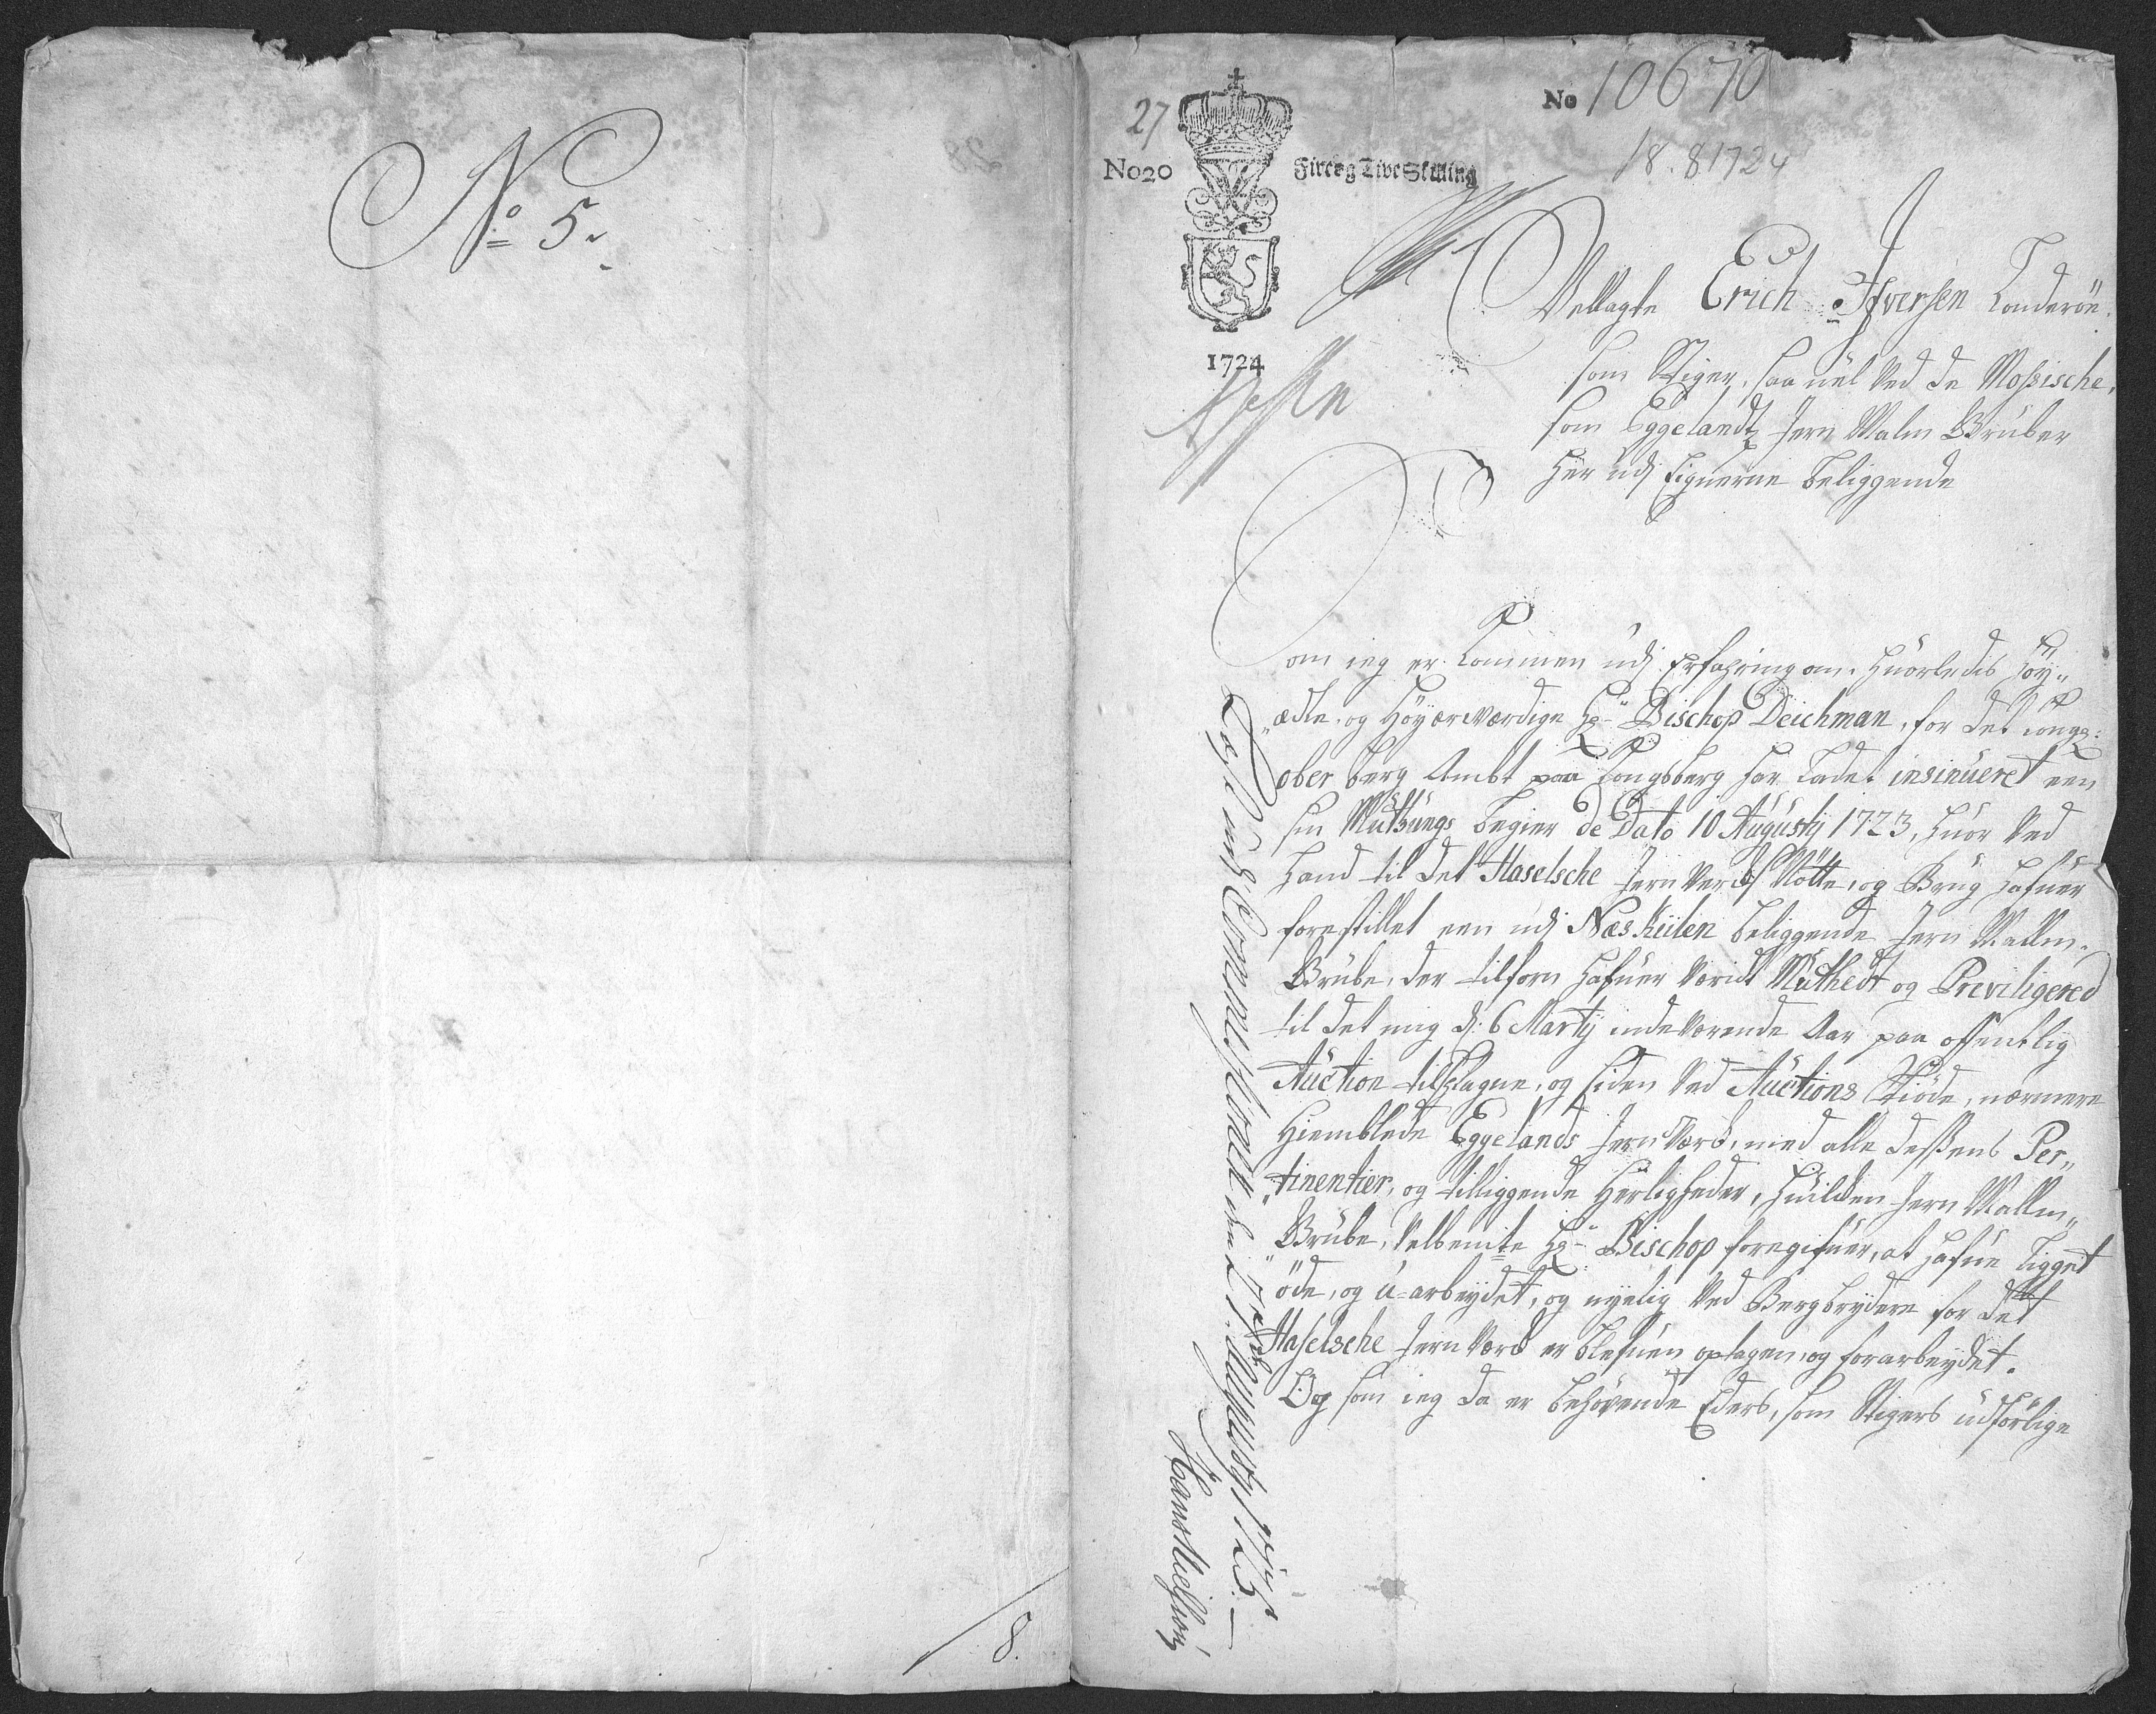 No 5.
/8.
27
No 10670
No20
Fire og Tive Skilling
18. 8 1724
1724
Vellagte Erich Ifversen
som Stiger, saa vel ved de Mossische,
som Eggelandtz Jern Malm Gruber
her udj Eignerne beliggende
Som ieg er kommen udj Erfahring om, huorledis Høy„
„ædle og Høyærværdige Hr Bischop Deichman, for det kongl:
ober berg Ambt paa Kongsberg har ladet insinueret een
sin Muthungs begier de Dato 10 Augustij 1723, huor ved
hand til det Haselsche Jern Verchs Nötte, og Brug hafuer
forestillet een udj Næs Keilen beliggende Jern Mallm„
Grube, der tilforn hafuer værit Muthedt og Previligered
til det mig d: 6 Martij indeværende Aar paa offentlig
Auction tilslagne, og siden ved Auctions Skiöde, nærmere
hiemblede Eggelands Jern Værk, med alle dessens Per„
„tinentier, og tilliggende Herligheder, huilken Jern Mallm„
„Grube, velbemte Hr Bischop foregifuer, at hafue ligget
öde, og u-arbeydet, og nyelig ved Bergbrydere for det
Haselsche Jern Værk er blefuen optagen, og forarbeydet.
Og som ieg da er behøvende Eders, som Stigers udförlige
1723.
Hans Nielsøn